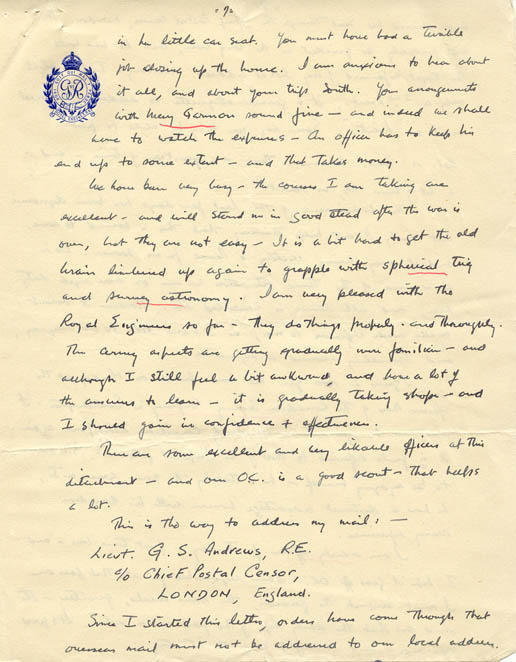 - 2 -
in her little car seat. You must have had a terrible
job closing up the house. I am anxious to hear about
it all, and about your trip South. Your arrangements
with Mary Garman sound fine - and indeed we shall
have to watch the expenses - An officer has to keep his
end up to some extent - and that takes money.
We have been very busy - the courses I am taking are
excellent - and will stand me in good stead after the war is
over, but they are not easy - It is a bit hard to get the old
brain limbered up again to grapple with spherical trig
and survey astronomy. I am very pleased with the
Royal Engineers so far - they do things properly and thoroughly.
The army aspects are getting gradually more familiar - and
although I still feel a bit awkward, and have a lot of
the answers to learn - it is gradually taking shape - and
I should gain in confidence + effectiveness.
There are some excellent and very likeable officers at this
detachment - and our O.C. is a good scout - that helps
a lot.
This is the way to address my mail: -
Lieut. G. S. Andrews, R.E.
c/o Chief Postal Censor,
LONDON, England.
Since I started this letter, orders have come through that
overseas mail must not be addressed to our local address.